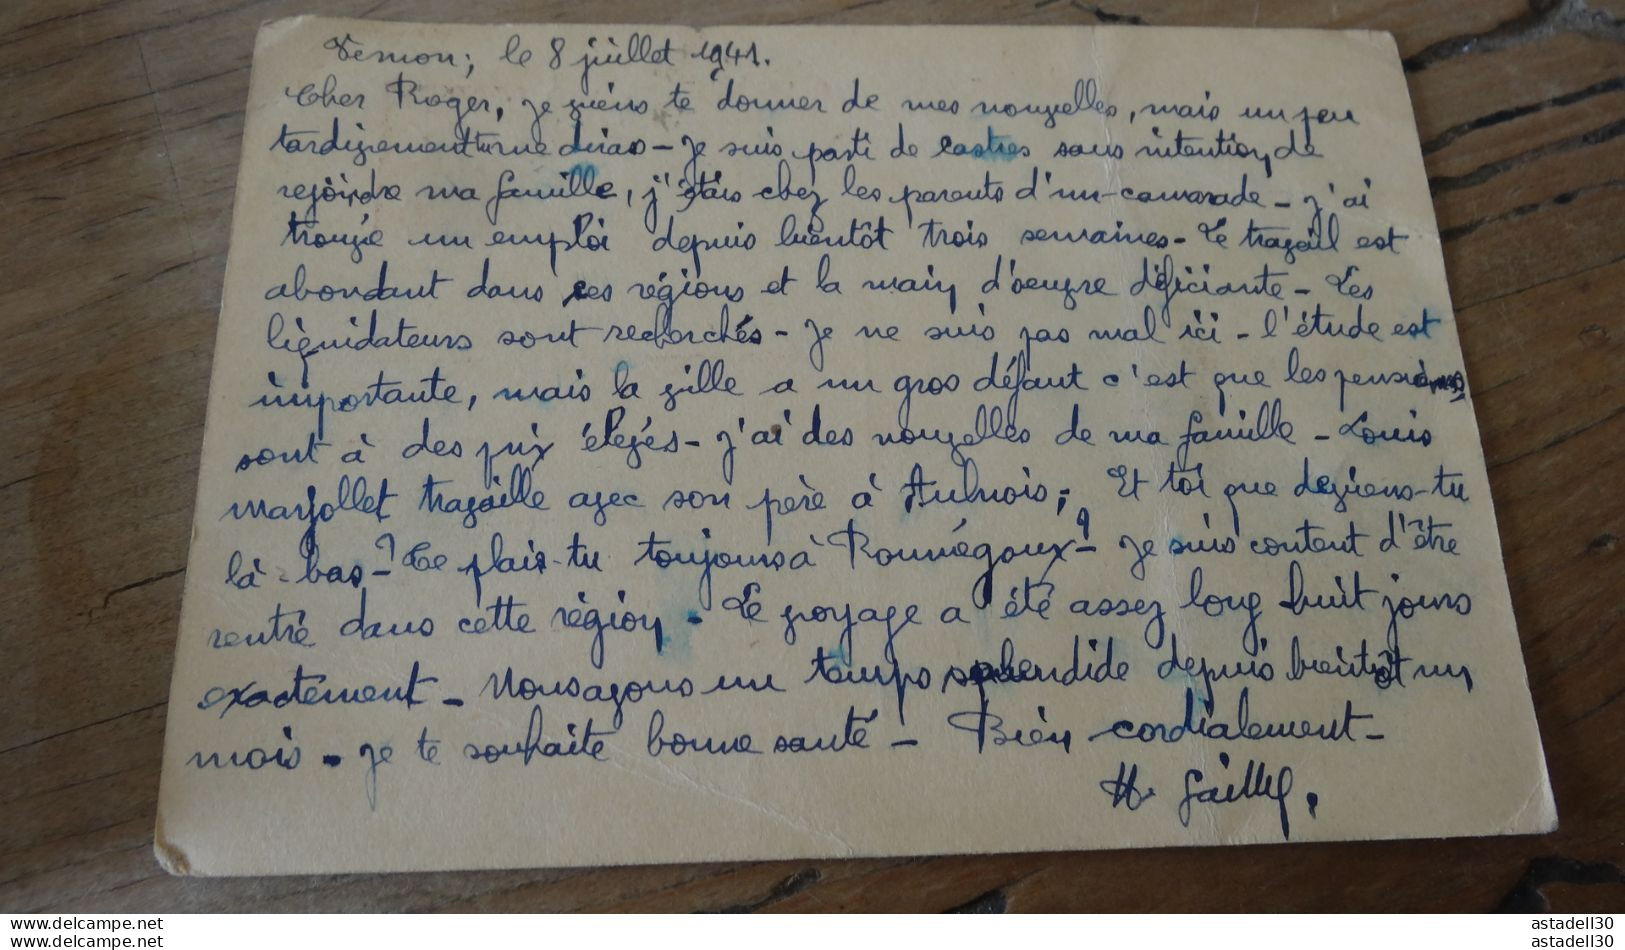 Vernon; le 8 juillet 1941.
Cher Roger, je viens te donner de mes nouvelles, mais un peu
tardivement tu me diras - Je suis parti de Castres sans intention de
rejoindre ma famille, j'étais chez les parents d'un camarade - J'ai
trouvé un emploi depuis bientôt trois semaines - Le travail est
abondant dans ces régions et la main d'oeuvre déficiante - Les
liquidateurs sont recherchés - Je ne suis pas mal ici - l'étude est
importante, mais la ville a un gros défaut c'est que les pensions
sont à des prix élevés - J'ai des nouvelles de ma famille - Louis
Marjollet travaille avec son père à Aulnois; Et toi que deviens-tu
là-bas ? Te plais-tu toujours à Roumégoux ? - Je suis content d'être
rentré dans cette région - Le voyage a été assez long huit jours
exactement - Nous avons un temps splendide depuis bientôt un
mois - Je te souhaite bonne santé - Bien cordialement -
astadell30
astadell30
delcampe.com
delcampe.com